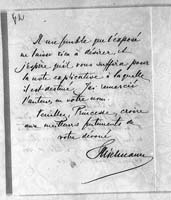 Il me semble que l'exposé
ne laisse rien à désirer, et
j'espère qu'il vous suffira pour
la note explicative à laquelle
il est destiné. J'ai remercié
l'auteur en votre nom.
Veuillez, Princesse, croire
aux meilleurs sentiments de
votre dévoué